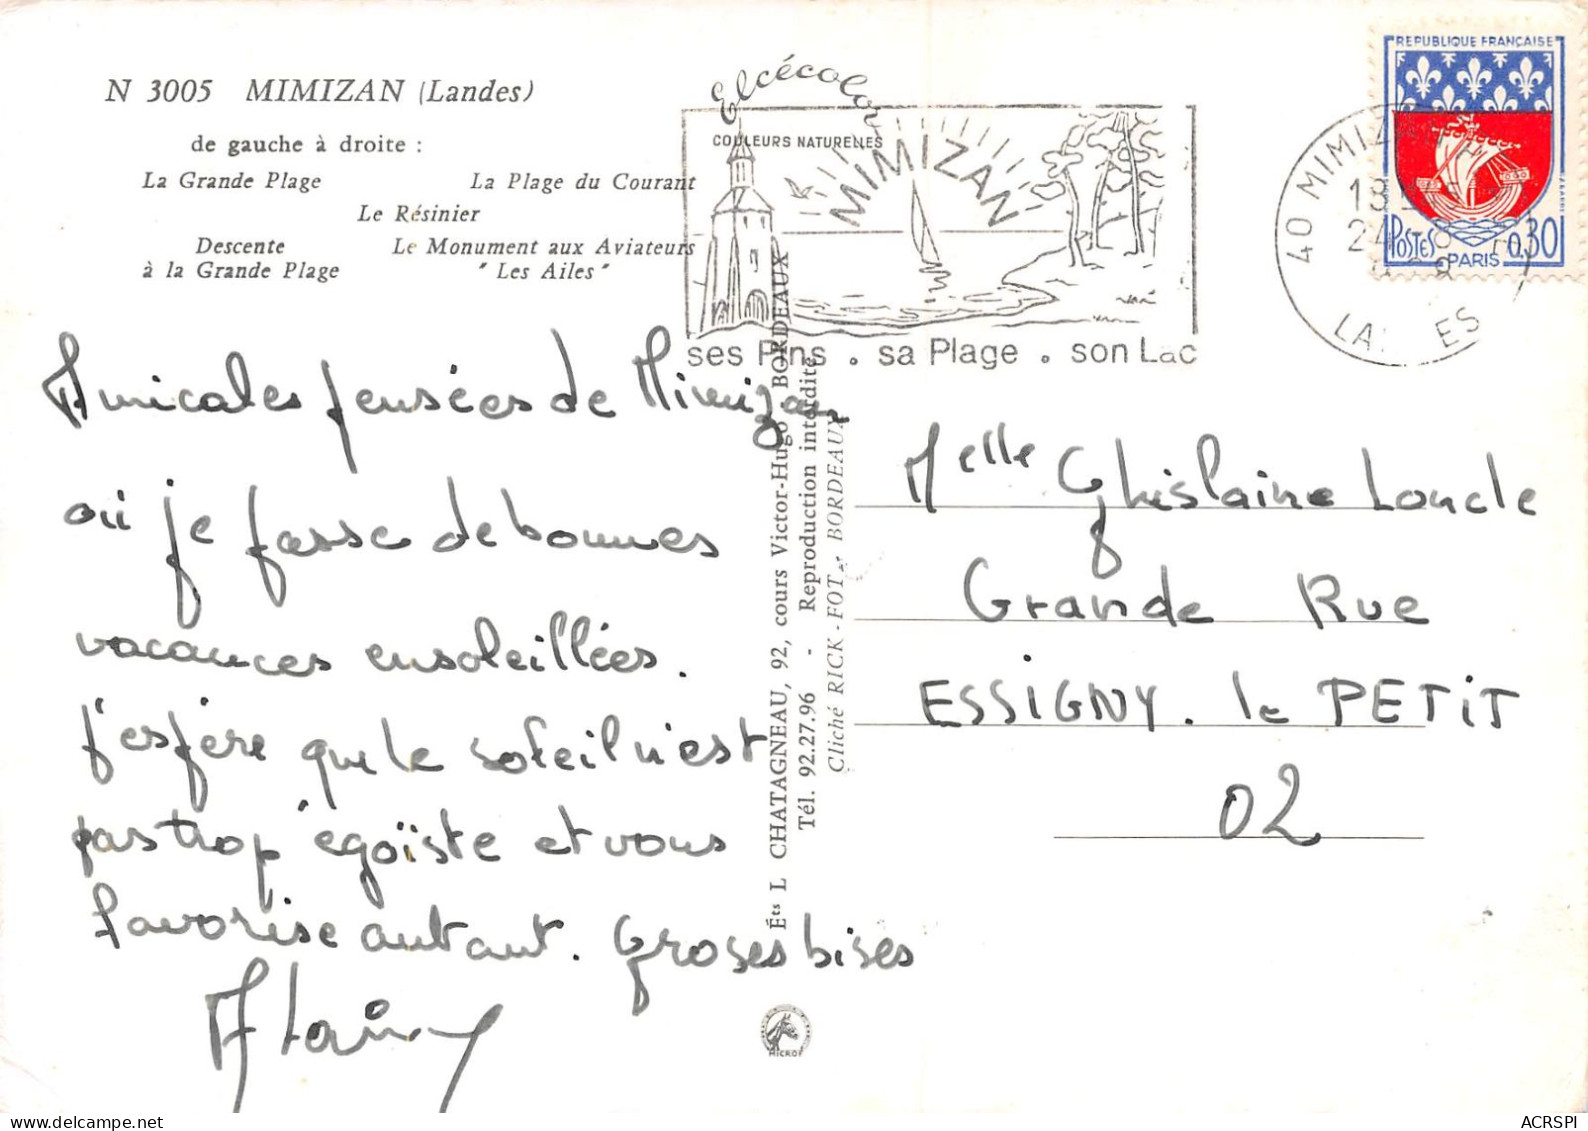 N 3005 MIMIZAN (Landes)
de gauche à droite :
La Grande Plage La Plage du Courant
Le Résinier
Descente Le Monument aux Aviateurs
à la Grande Plage "Les Ailes"
Elcécolor
COULEURS NATURELLES
MIMIZAN
ses Pins . sa Plage . son Lac
40 MIMIZAN
LANDES
REPUBLIQUE FRANÇAISE
POSTES PARIS 0,30
Amicales pensées de Mimizan
où je passe de bonnes
vacances ensoleillées.
J'espère que le soleil n'est
pas trop égoïste et vous
favorise autant. Groses bises
Alain
Éts L CHATAGNEAU, 92, cours Victor-Hugo BORDEAUX
Tél. 92.27.96 - Reproduction interdite
Cliché RICK-FOT - BORDEAUX
Melle Ghislaine Loncle
Grande Rue
ESSIGNY. le PETIT
02
MICROF
ACRSPI